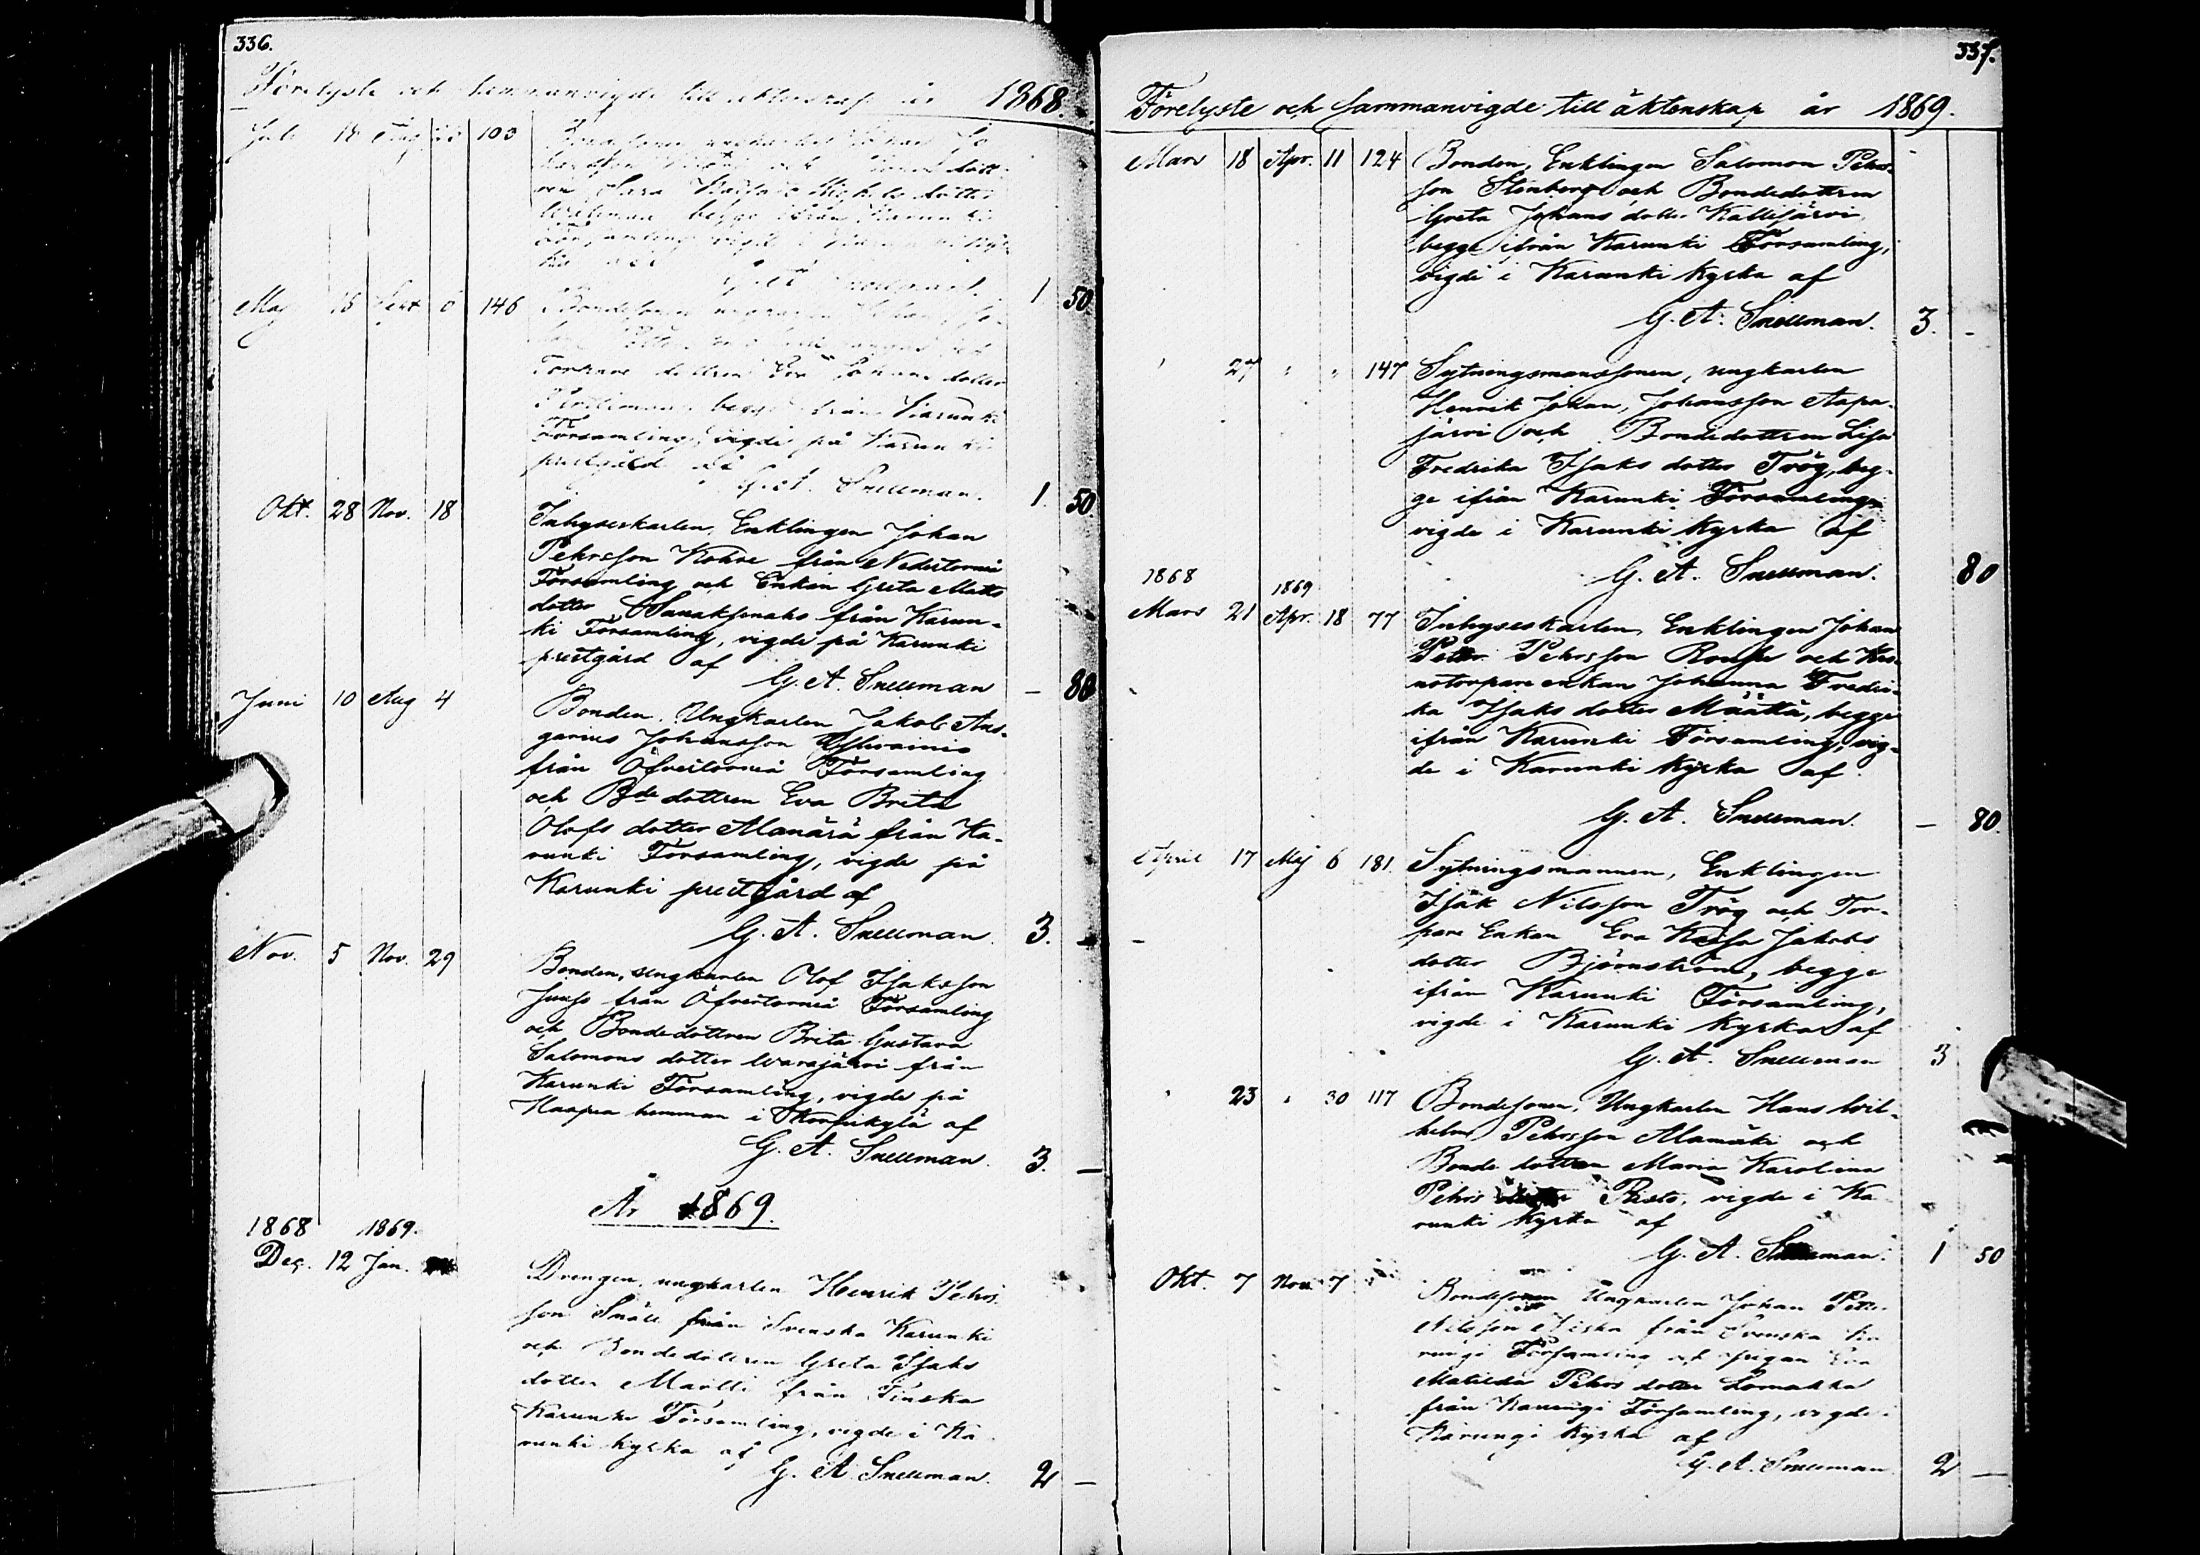 336.
Förelyste och sammanvigde till äktenskap år 1868.
Juli 18 Aug 103
och
ren Sara
begge ifrån Karunki
Församling vigde i Karunki
1 50
Maj 15 Sept 6 146 Bondesonen ungkarlen Johan
Torpare dottren Eva Johans dotter
begge ifrån Karunki
Församling, vigde på Karunki
prestgård af
G. A. Snellman. 1. 50
Okt. 28 Nov. 18 Inhyseskarlen, Enklingen Johan
Pehrsson Kohve från Nedertorneå
Församling och Enkan Greta Matts
dotter från Karun-
ki Församling, vigde på Karunki
prestgård af
G. A. Snellman — 80
Juni 10 Aug 4 Bonden, Ungkarlen Jakob Ans-
garius Johansson
från Öfvertorneå Församling
och Bde dottren Eva Brita
Olofs dotter Alanärä från Ka-
runki Församling, vigde på
Karunki prestgård af
G. A. Snellman. 3. —
Nov. 5 Nov. 29 Bonden, ungkarlen Olof Isaksson
Junso från Öfvertorneå Församling
och Bondedottren Brita Gustava
Salomons dotter Warajärvi från
Karunki Församling, vigde på
Haapea hemman i Korpikylä af
G. A. Snellman. 3. —
År 1869.
1868 1869.
Dec. 12 Jan.
Drengen, ungkarlen Henrik Pehrs-
son Snäll från Svenska Karunki
och Bondedottren Greta Isaks
dotter från Finska
Karunki Församling, vigde i Ka-
runki kyrka af
G. A. Snellman. 2 —
337.
Förelyste och sammanvigde till äktenskap år 1869.
Mars 18 Apr. 11 124 Bonden, Enklingen Salomon Pehrs-
son Stenberg och Bondedottren
Greta Johans dotter Kallijärvi,
begge ifrån Karunki Församling,
vigde i Karunki kyrka af
G. A. Snellman. 3. —
" 27 " " 147 Sytningsmanssonen, ungkarlen
Henrik Johan, Johansson Aapa-
järvi och Bondedottren Lisa
Fredrika Isaks dotter Trög, beg-
ge ifrån Karunki Församling,
vigde i Karunki kyrka af
G. A. Snellman. 80
1868 1869
Mars 21 Apr. 18 77 Inhyseskarlen, Enklingen Johan
Petter Pehrsson och Kro-
notorpare enkan Johanna Fredri-
ka Isaks dotter Määttä, begge
ifrån Karunki Församling, vig-
de i Karunki kyrka af
G. A. Snellman. — 80.
April 17 Maj 6 181. Sytningsmannen, Enklingen
Isak Nilsson Trög och Tor-
pare Enkan Eva Kajsa Jakobs
dotter Björnström, begge
ifrån Karunki Församling,
vigde i Karunki kyrka af
G. A. Snellman 3
" 23 " 30 117 Bondesonen, Ungkarlen Hans Wil-
helm Pehrsson Alamäki och
Bonde dottren Maria Karolina
Pehrs dotter vigde i Ka-
runki kyrka af
G. A. Snellman. 1 50
Okt. 7 Nov. 7 Bondesonen Ungkarlen Johan Petter
Nilsson från Svenska Ka-
rungi Församling och pigan Eva
Matilda Pehrs dotter Lomakka
från Karungi Församling, vigde i
Karungi kyrka af
G. A. Snellman. 2 —